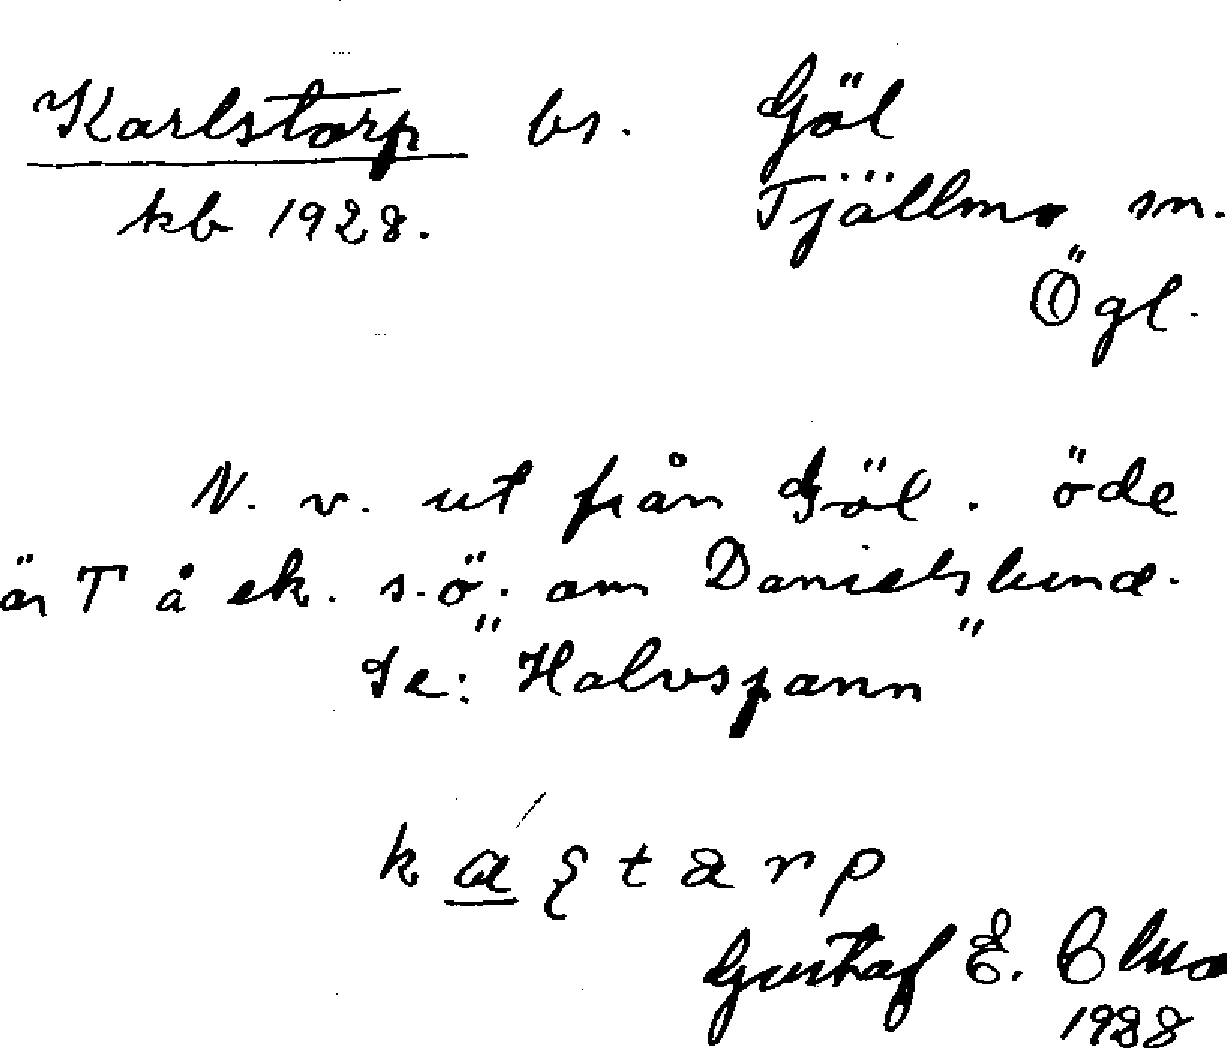 Karlstorp bs. Göl
kb 1928. Tjällmo sn.
Ögl.
N. v. ut från Göl. öde
är T å ek. s.ö. om Danielslund.
Se: "Halvspann"
k a ʂ t a r p
Gustaf E.
1928